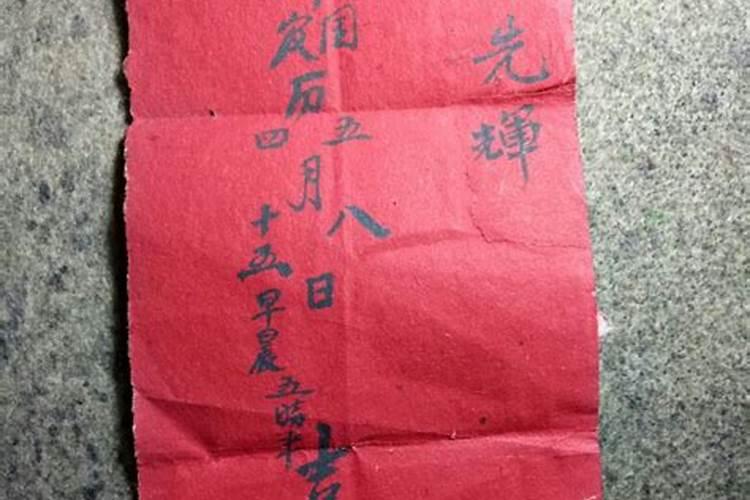 先輝
国历五月八日吉
农四十五早晨五時半